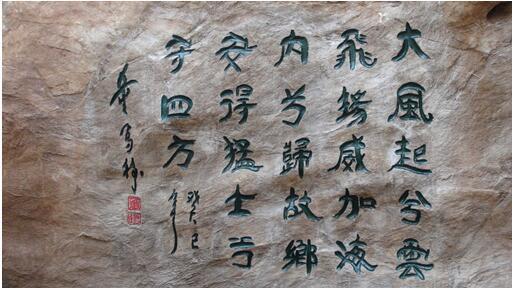 大風起兮雲
飛揚威加海
內兮歸故鄉
安得猛士兮
守四方